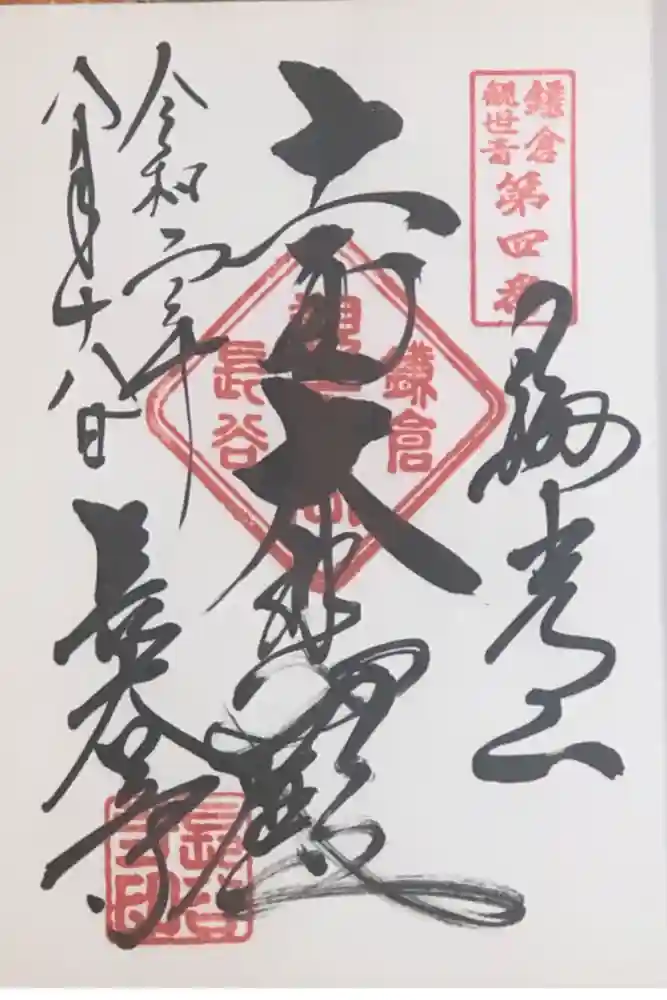 鎌倉
観世音
第四番
海光山
十一面大悲殿
鎌倉
観世音
長谷
令和二年
八月十八日
長谷寺
長谷
寺印